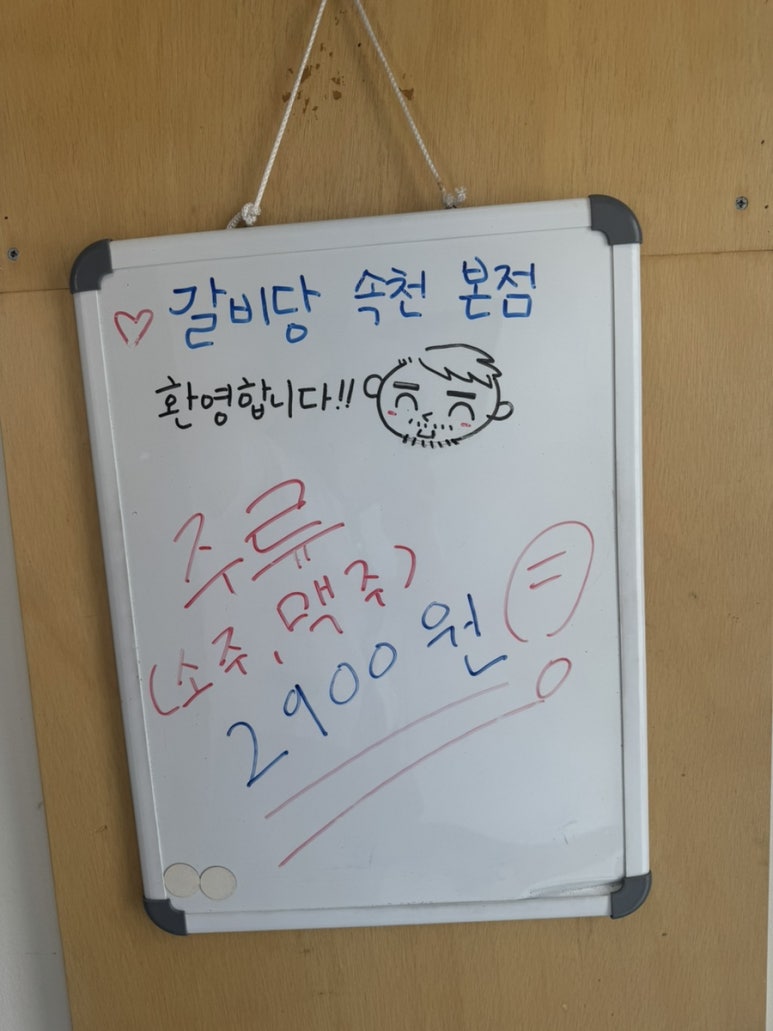 ♡ 갈비당 속천 본점
환영합니다!!
주류
(소주, 맥주)
2900원